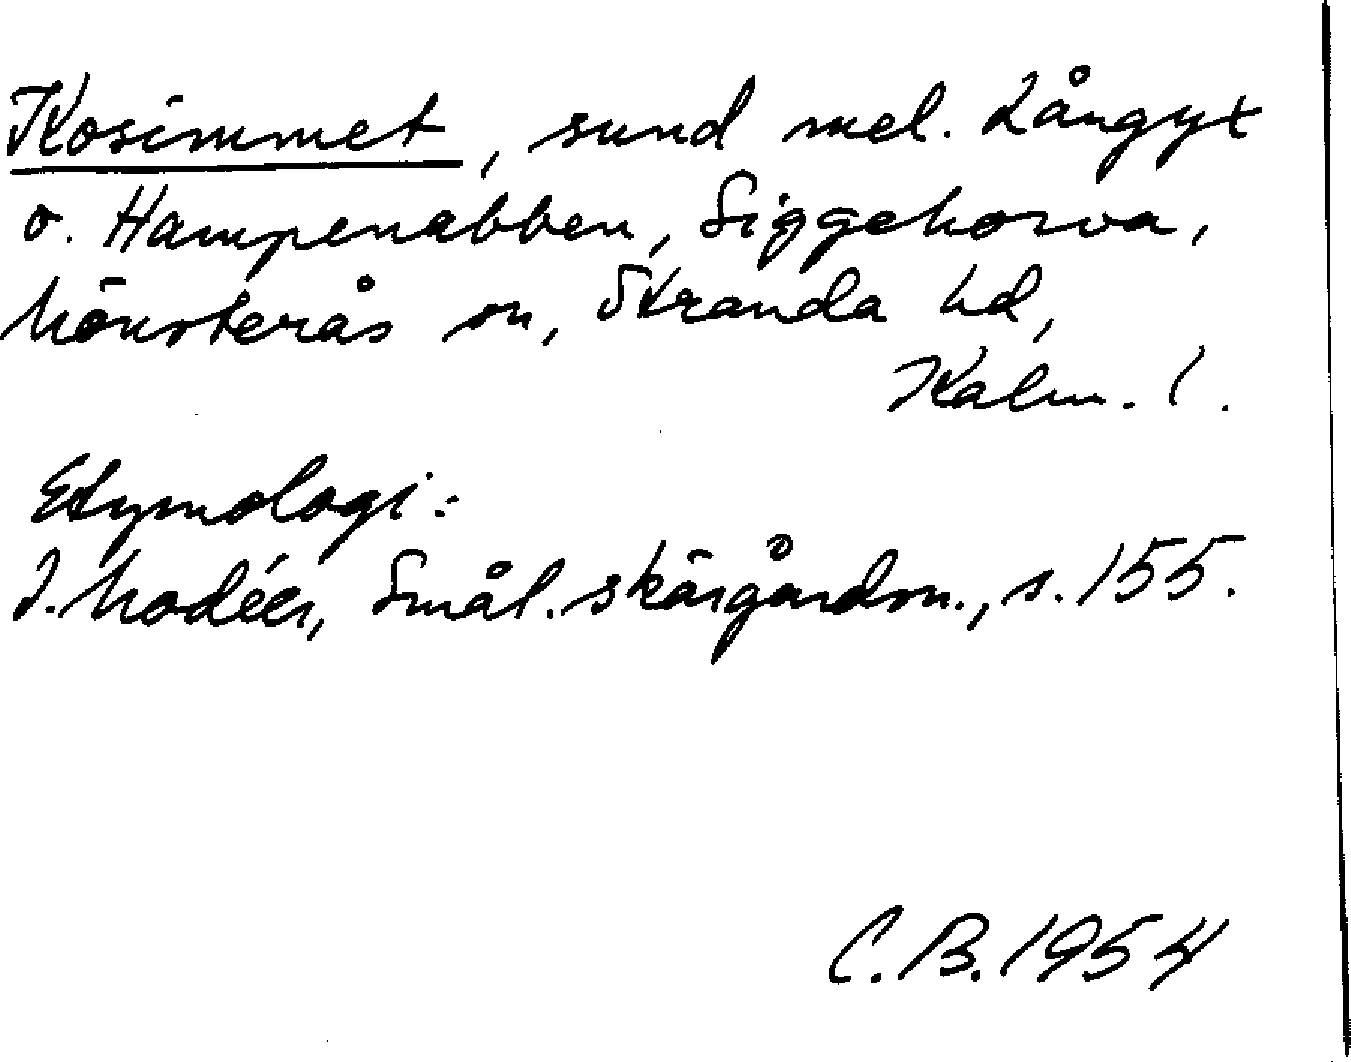 Kosimmet, sund mel. Långyx
o. Hampenabben, Siggehorva,
Mönsterås sn, Stranda hd,
Kalm. l.
Etymologi:
I. Modéer, Smål. skärgårdsn., s. 155.
C. B. 1954